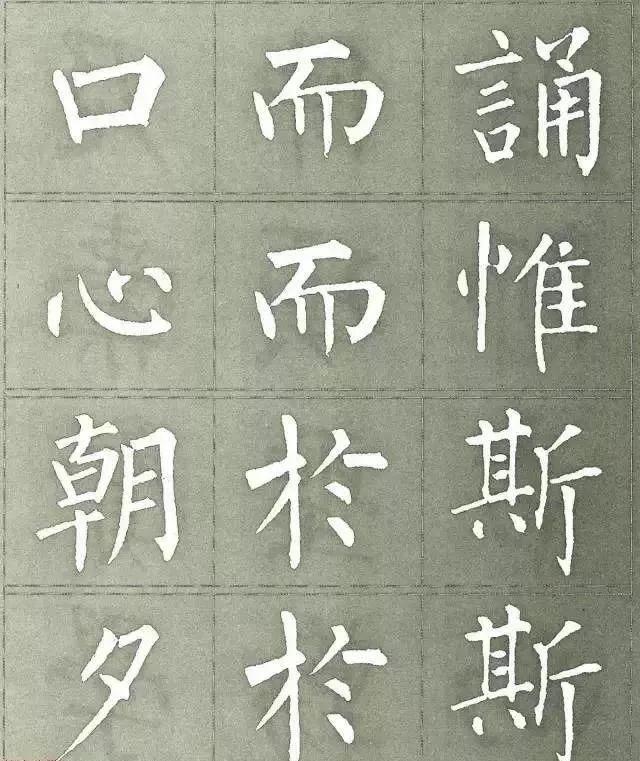 口而誦
心而惟
朝於斯
夕於斯